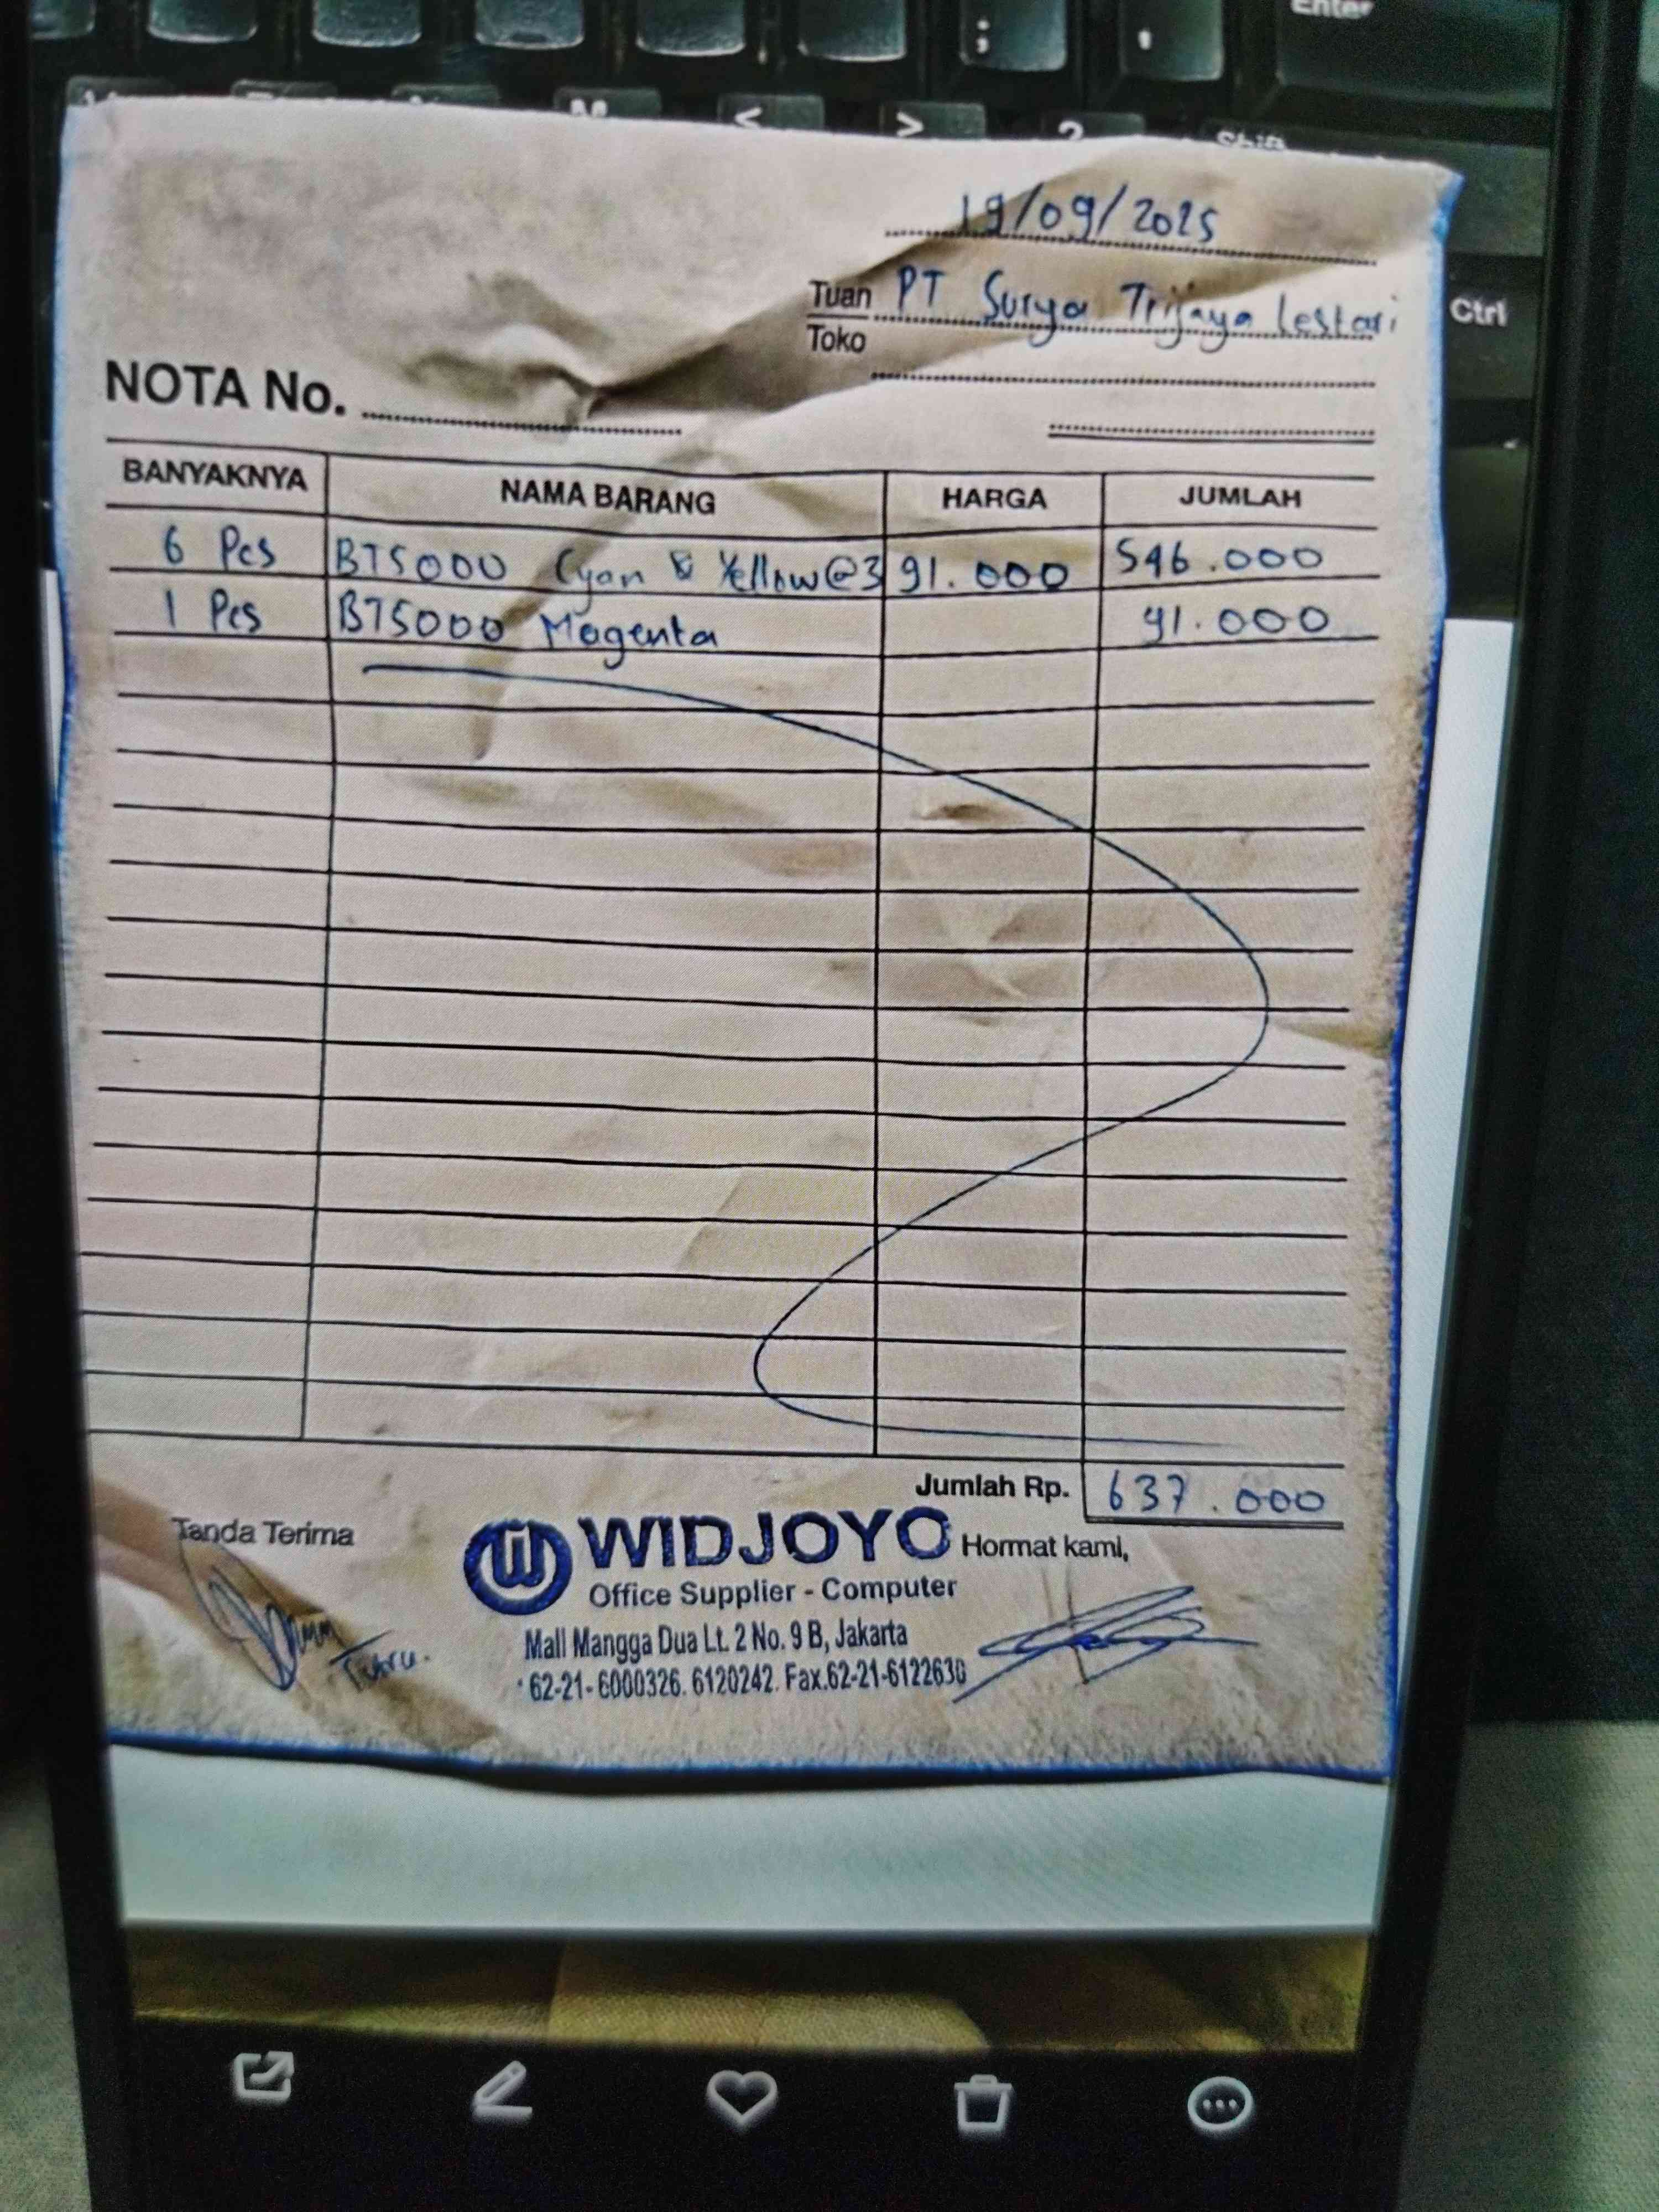 Enter
;
,
M
<
>
?
Shift
Ctrl
19/09/2025
Tuan PT Surya Trijaya Lestari
Toko
NOTA No.
BANYAKNYA NAMA BARANG HARGA JUMLAH
6 Pcs BT5000 Cyan & Yellow@3 91.000 546.000
1 Pcs BT5000 Magenta 91.000
Jumlah Rp. 637.000
Tanda Terima
WIDJOYO
Hormat kami,
Office Supplier - Computer
Mall Mangga Dua Lt. 2 No. 9 B, Jakarta
62-21-6000326. 6120242. Fax.62-21-6122630